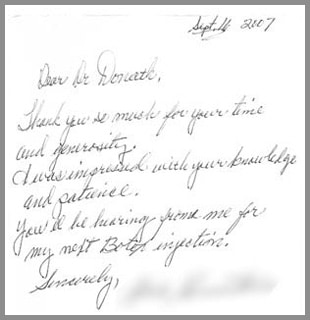 Sept. 16 2007
Dear Dr Donath,
Thank you so much for your time
and generosity.
I was impressed with your knowledge
and patience.
You'll be hearing from me for
my next Botox injection.
Sincerely,